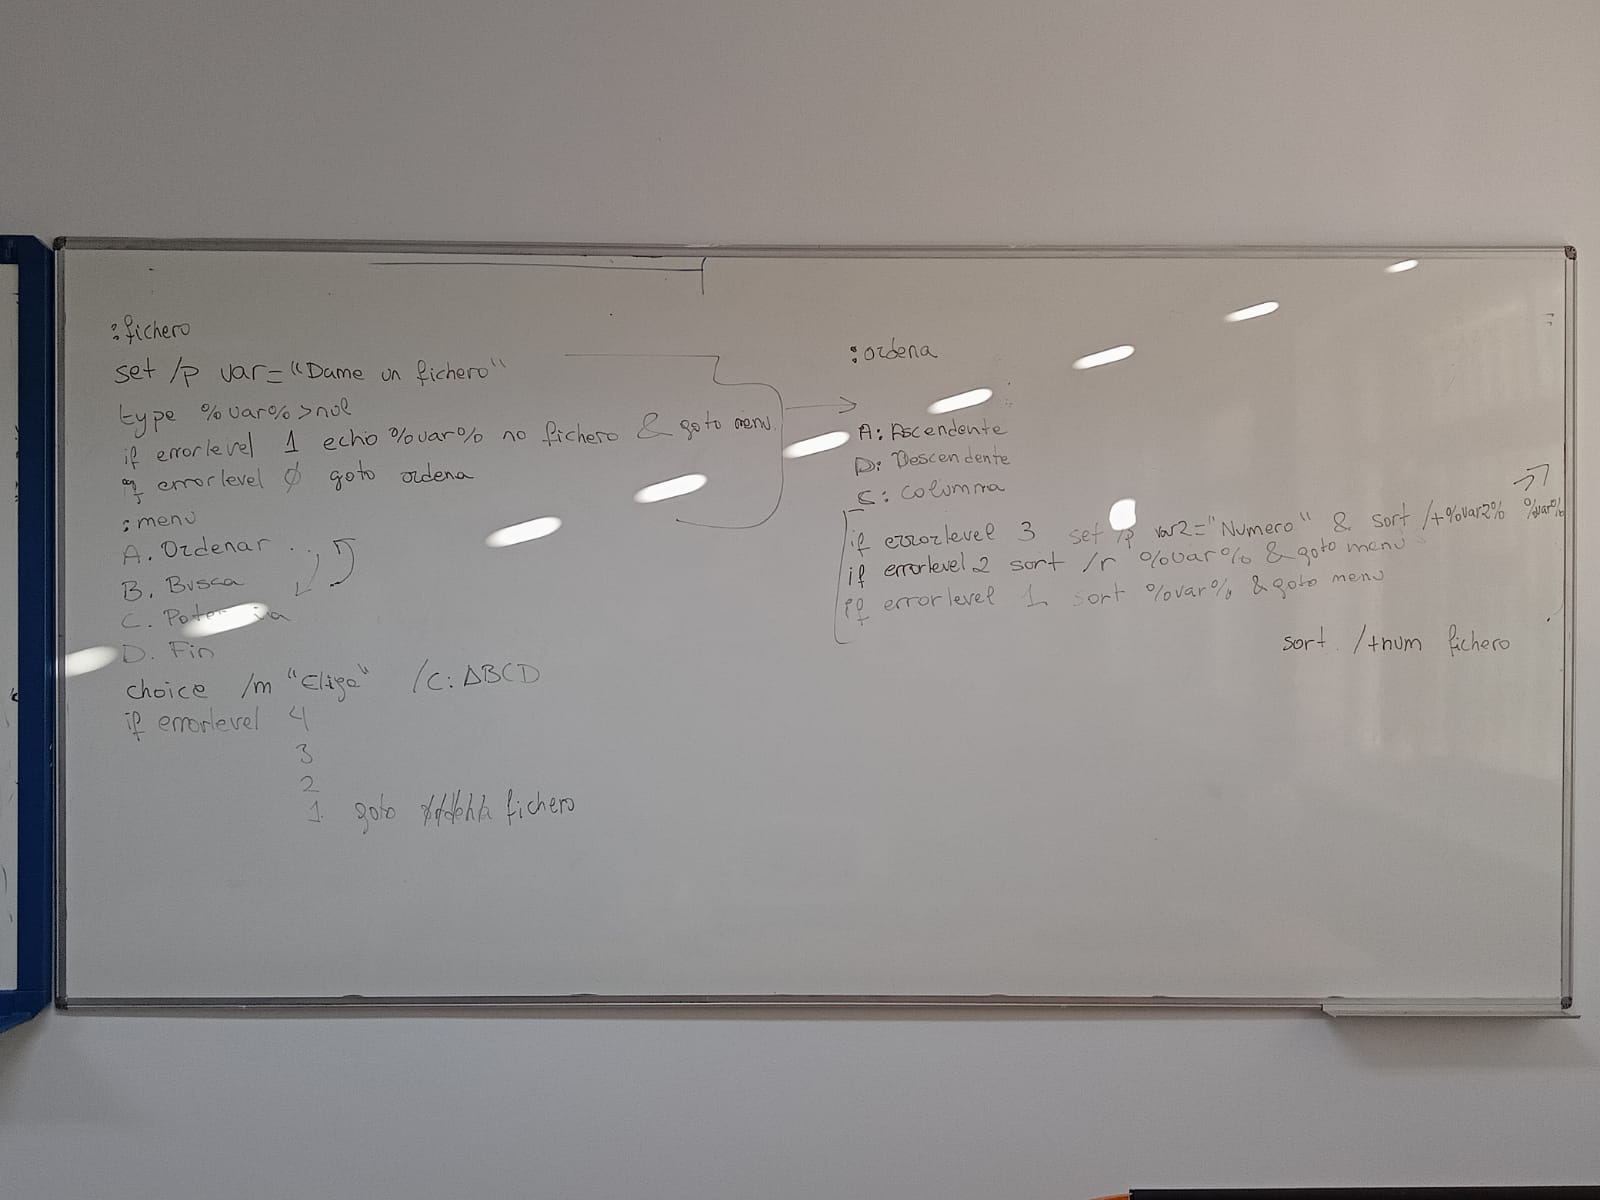 :fichero
set /p var="Dame un fichero"
type %var%>nul
if errorlevel 1 echo %var% no fichero & goto menu
if errorlevel 0 goto ordena
:menu
A. Ordenar
B. Busca
C. Potencia
D. Fin
choice /m "Elige" /c:ABCD
if errorlevel 4
3
2
1 goto fichero
:ordena
A: Ascendente
D: Descendente
C: Columna
if errorlevel 3 set /p var2="Numero" & sort /+%var2% %var%
if errorlevel 2 sort /r %var% & goto menu
if errorlevel 1 sort %var% & goto menu
sort /+num fichero